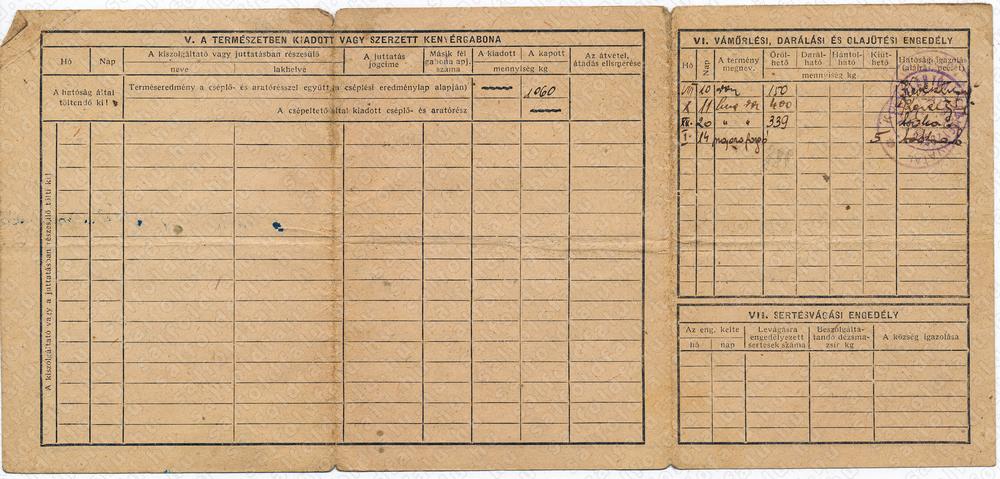 V. A TERMÉSZETBEN KIADOTT VAGY SZERZETT KENYÉRGABONA
Hó
Nap
A kiszolgáltató vagy juttatásban részesülő
neve
lakhelye
A juttatás jogcíme
Másik fél gabona apj. száma
A kiadott
A kapott
mennyiség kg
Az átvétel, átadás elismerése
A hatóság által töltendő ki!
Terméseredmény a cséplő- és aratórésszel együtt (a cséplési eredménylap alapján)
1060
A csépeltető által kiadott cséplő- és aratórész
A kiszolgáltató vagy a juttatásban részesülő tölti ki!
VI. VÁMŐRLÉSI, DARÁLÁSI ÉS OLAJÜTÉSI ENGEDÉLY
Hó
Nap
A termény megnev.
Őrölhető
Darálható
Hántolható
Kiüthető
mennyiség kg
Hatósági igazolás (aláírás, pecsét)
VIII 10 150
X 11 400
XII. 20 " " 339
I. 14 napraforgó 5
VII. SERTÉSVÁGÁSI ENGEDÉLY
Az eng. kelte
hó
nap
Levágásra engedélyezett sertések száma
Beszolgáltatandó dézsmazsír kg
A község igazolása